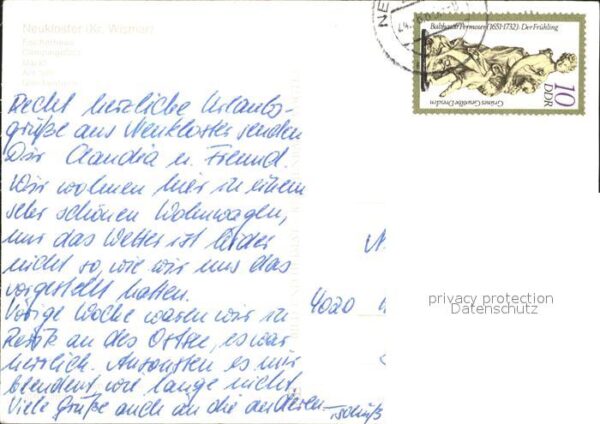 Neukloster (Kr. Wismar)
Fischerhaus
Campingplatz
Markt
Am See
Recht herzliche Urlaubs-
grüße aus Neukloster senden
Dir Claudia u. Freund.
Wir wohnen hier in einem
sehr schönen Wohnwagen,
nur das Wetter ist leider
nicht so, wie wir uns das
vorgestellt hatten.
Vorige Woche waren wir in
Rerik an des Ostsee, es war
herrlich. Ansonsten es mir
blendent, wie lange nicht.
Viele Grüße auch an die anderen
tschüß
4020
NE
Balthasar Permoser (1651-1732): Der Frühling
Grünes Gewölbe Dresden
10
DDR
privacy protection
Datenschutz